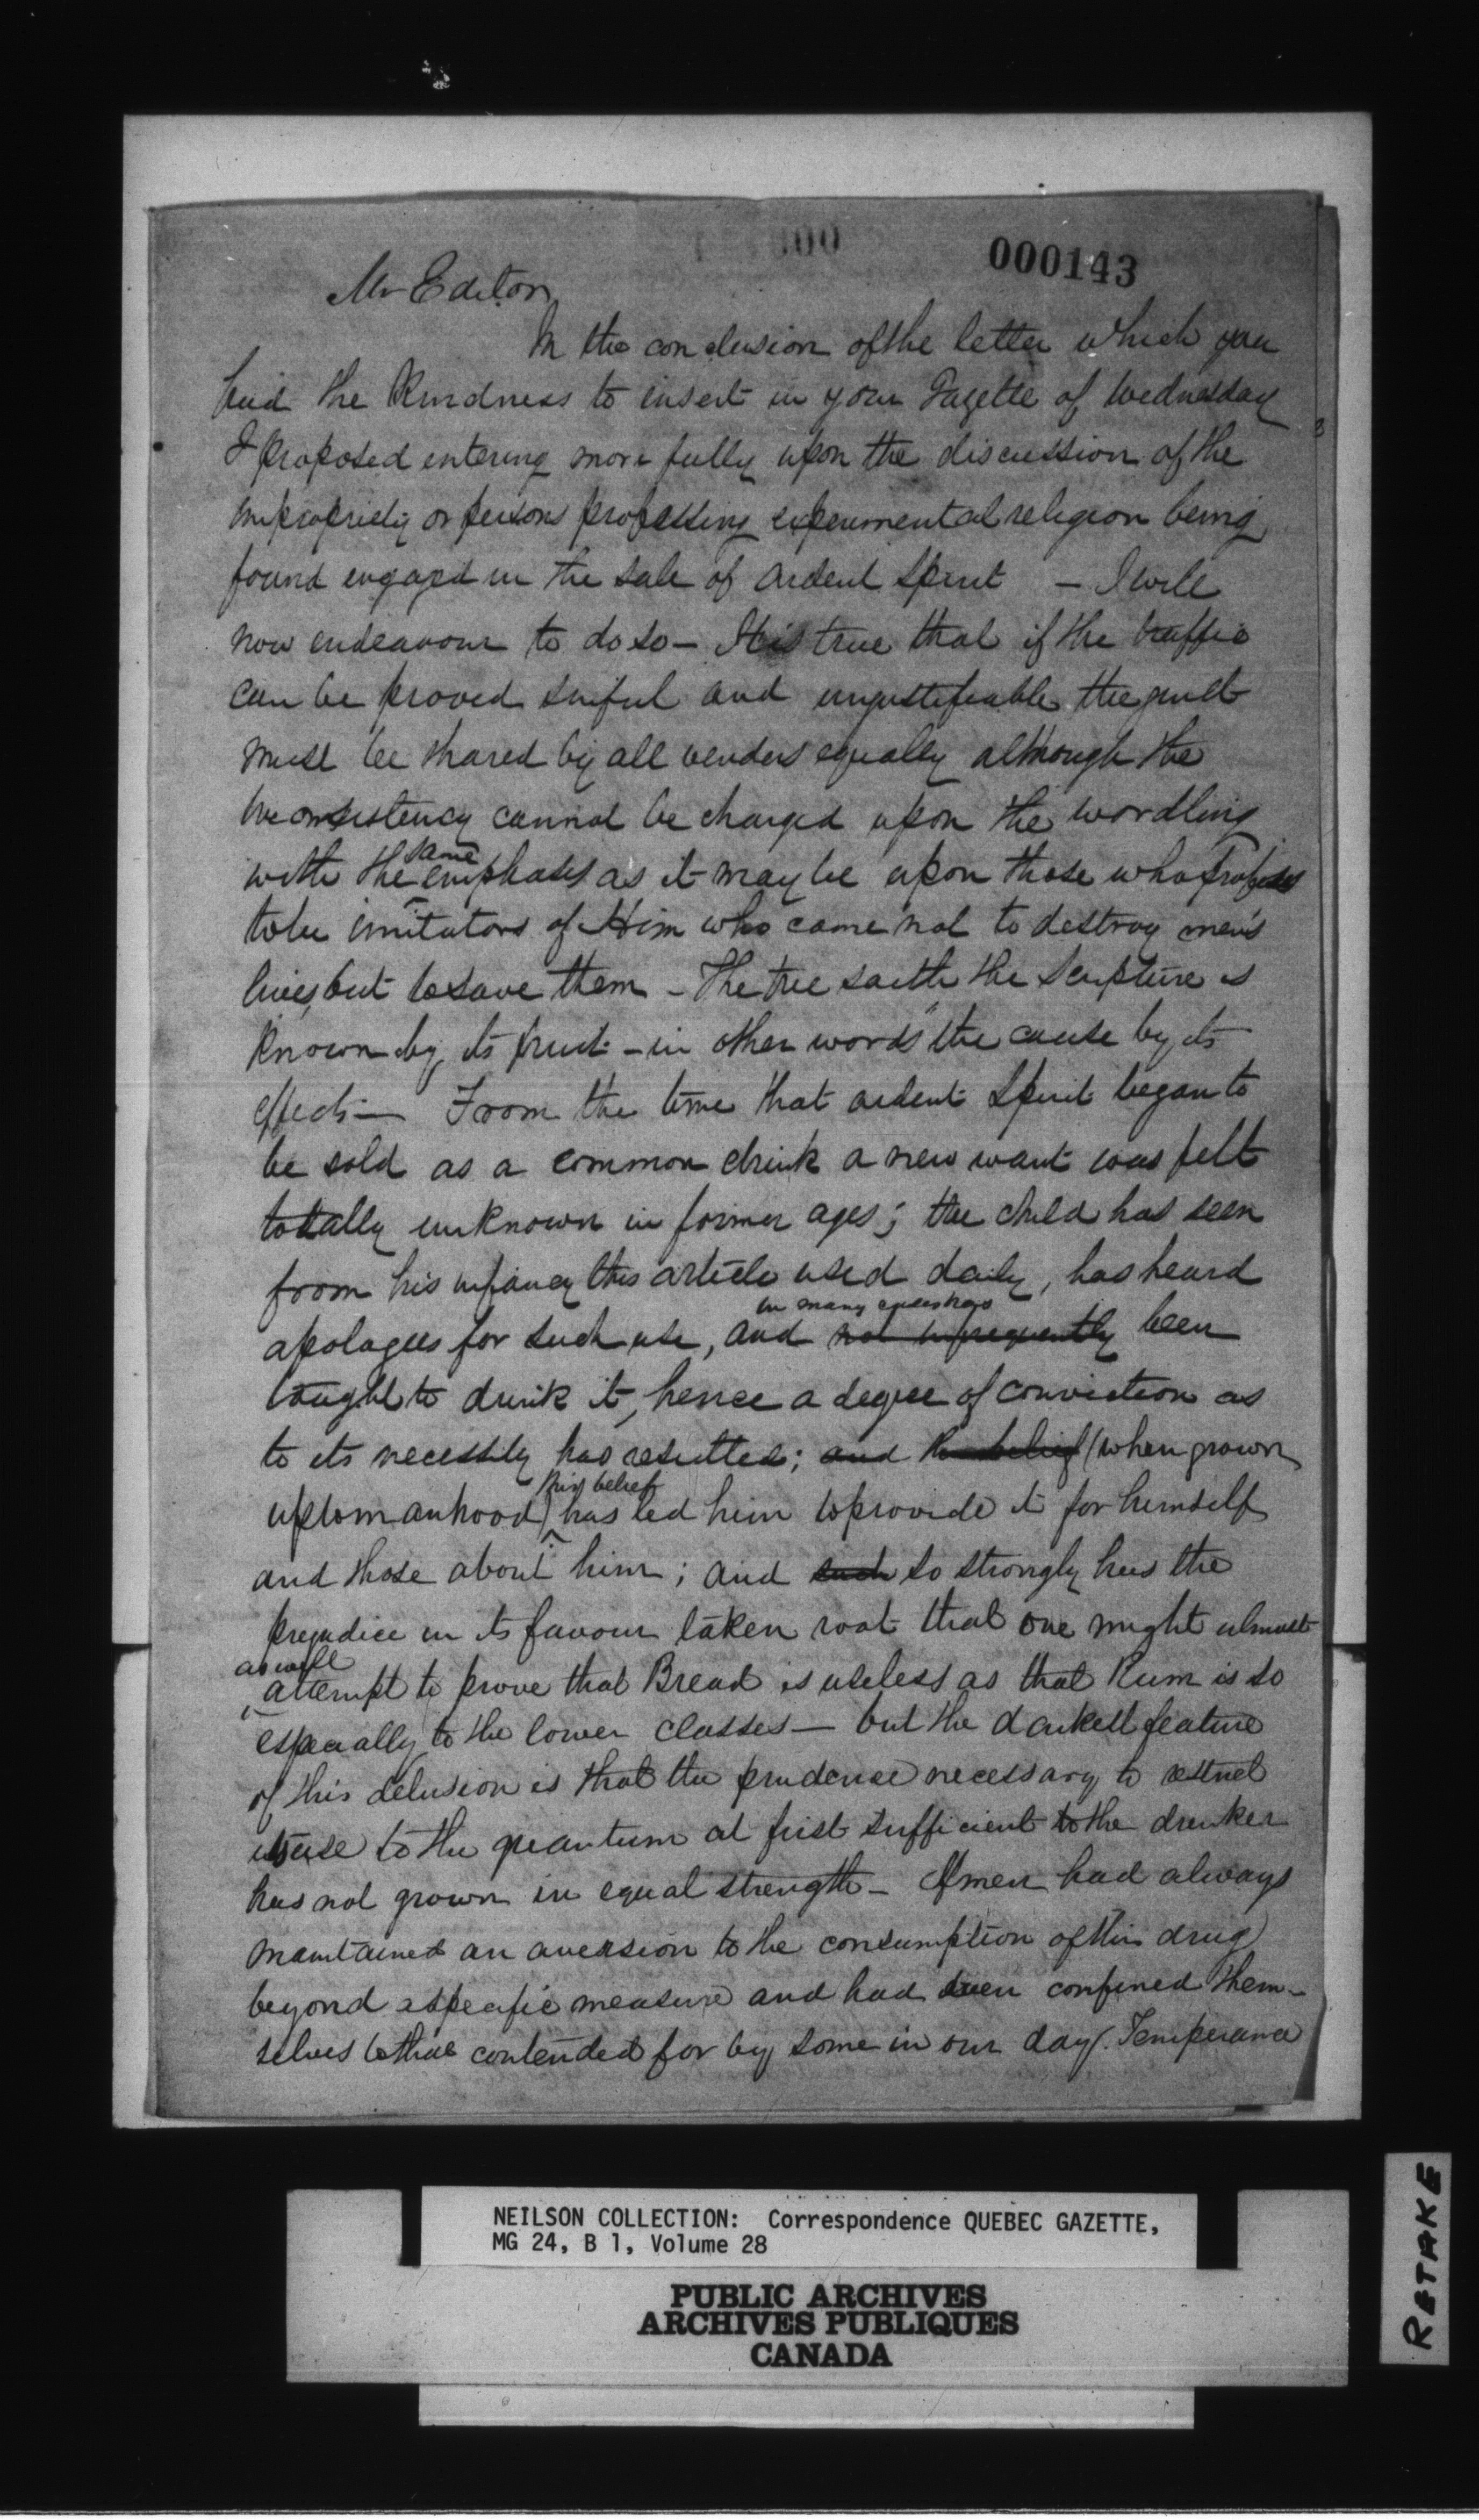 000143
Mr Editor
In the conclusion of the letter which you
had the Kindness to insert in your Gazette of Wednesday
I proposed entering more fully upon the discussion of the
impropriety of persons professing experimental religion being
found engaged in the sale of ardent Spirit – I will
now endeavour to do so – It is true that if the traffic
can be proved sinful and unjustifiable the guilt
must be shared by all venders equally although the
inconsistency cannot be charged upon the wordling
with the same emphasis as it may be upon those who professes
to be imitators of Him who came not to destroy men's
lives, but to save them – The tree saith the Scripture is
Known by its fruit – in other words the cause by its
effects – From the time that ardent Spirit began to
be sold as a common drink a new want was felt
totally unknown in former ages; the child has seen
from his infancy this article used daily, has heard
in many cases has
apologies for such use, and not infrequently been
taught to drink it, hence a degree of conviction as
to its necessity has resulted; and the belief (when grown
this belief
up to manhood) has led him to provide it for himself
and those about him; and such so strongly has the
prejudice in its favour taken root that one might almost
as well
attempt to prove that Bread is useless as that Rum is so
especially to the lower classes – but the darkest feature
of this delusion is that the prudence necessary to restrict
its use to the quantum at first sufficient to the drinker
has not grown in equal strength – If men had always
maintained an aversion to the consumption of this drug
beyond a specific measure and had even confined them-
selves to that contended for by some in our day (Temperance
NEILSON COLLECTION: Correspondence QUEBEC GAZETTE,
MG 24, B 1, Volume 28
PUBLIC ARCHIVES
ARCHIVES PUBLIQUES
CANADA
RETAKE